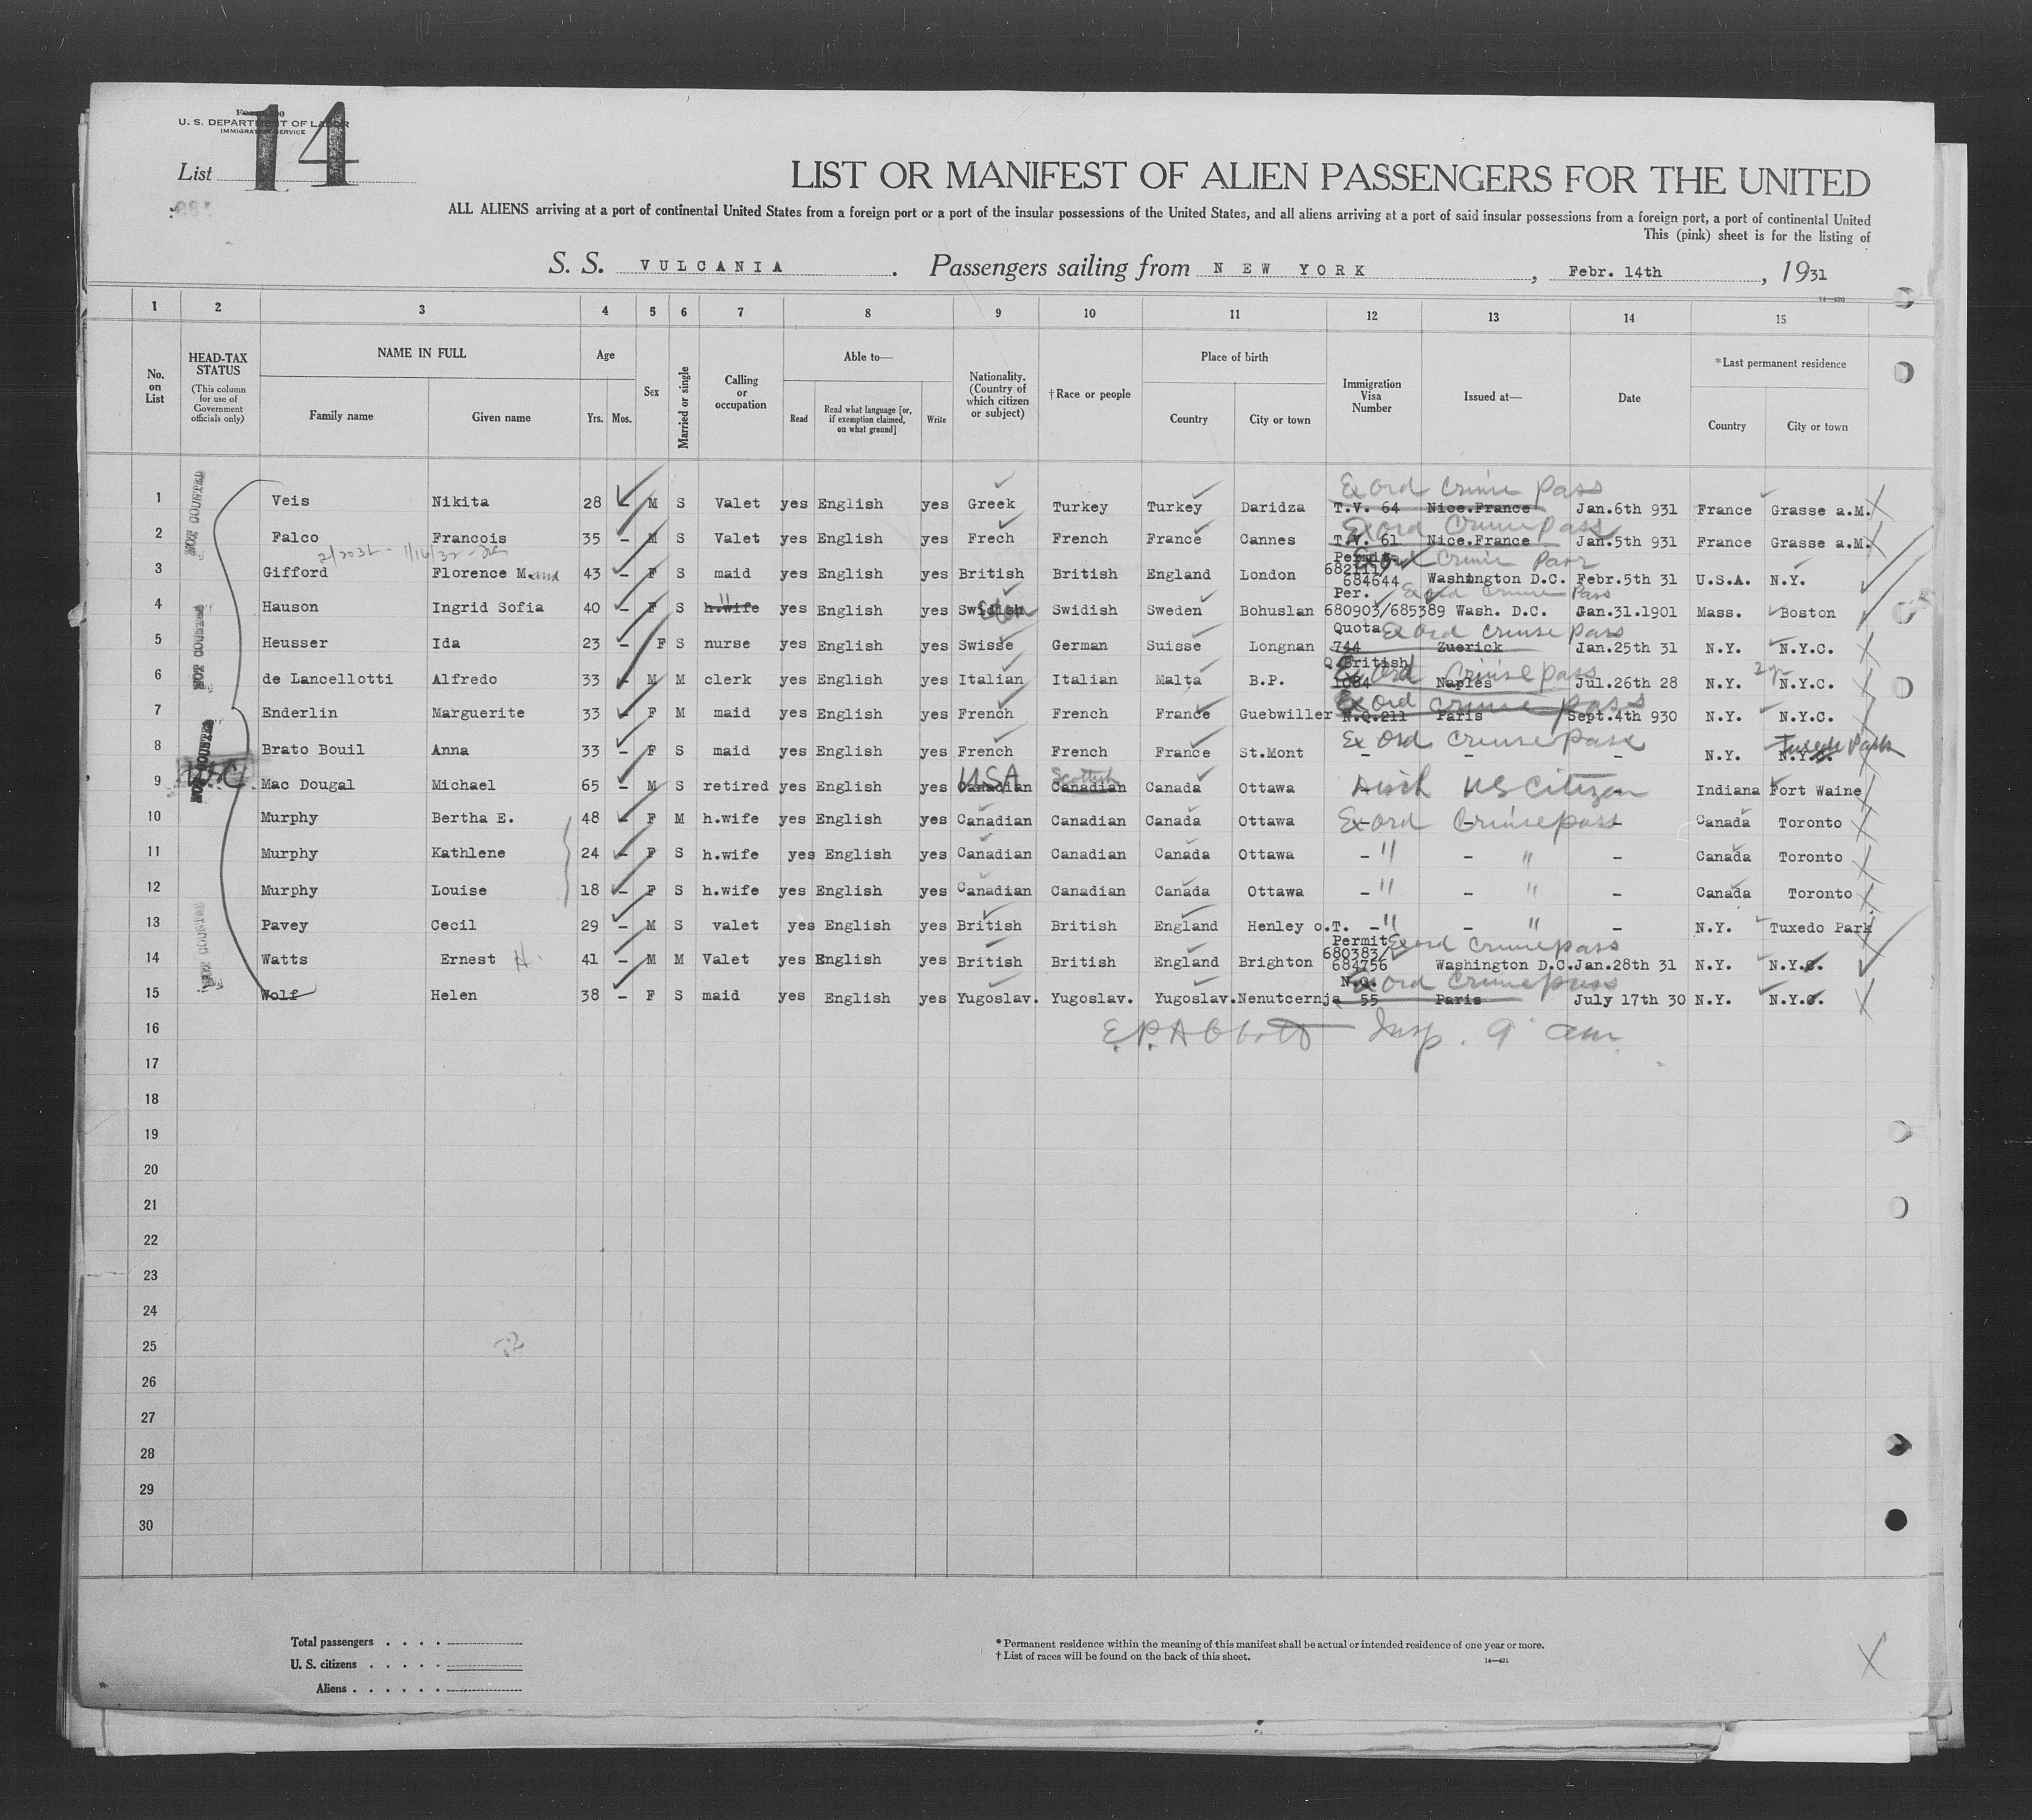 U. S. DEPARTMENT OF LABOR
IMMIGRATION SERVICE
List 14
LIST OR MANIFEST OF ALIEN PASSENGERS FOR THE UNITED
ALL ALIENS arriving at a port of continental United States from a foreign port or a port of the insular possessions of the United States, and all aliens arriving at a port of said insular possessions from a foreign port, a port of continental United
This (pink) sheet is for the listing of
S. S. VULCANIA. Passengers sailing from NEW YORK, Febr. 14th, 1931
14—420
1 2 3 4 5 6 7 8 9 10 11 12 13 14 15
No. on List
HEAD-TAX STATUS
(This column for use of Government officials only)
NAME IN FULL
Family name Given name
Age
Yrs. Mos.
Sex
Married or single
Calling or occupation
Able to—
Read Read what language [or, if exemption claimed, on what ground] Write
Nationality. (Country of which citizen or subject)
† Race or people
Place of birth
Country City or town
Immigration Visa Number
Issued at—
Date
*Last permanent residence
Country City or town
NOT COUNTED
Ex ord Cruise Pass
1 Veis Nikita 28 M S Valet yes English yes Greek Turkey Turkey Daridza T.V. 64 Nice.France Jan.6th 931 France Grasse a.M.
Ex ord Cruise Pass
2 Falco Francois 35 – M S Valet yes English yes Frech French France Cannes T.V. 61 Nice.France Jan.5th 931 France Grasse a.M.
Permit Cruise Pass
682111/
3 Gifford Florence M. 43 – F S maid yes English yes British British England London 684644 Washington D.C. Febr.5th 31 U.S.A. N.Y.
Per. Ex ord Cruise Pass
4 Hauson Ingrid Sofia 40 – F S h.wife yes English yes Swidish Swidish Sweden Bohuslan 680903/685389 Wash. D.C. Gan.31.1901 Mass. Boston
NOT COUNTED
Quota Ex ord Cruise Pass
5 Heusser Ida 23 – F S nurse yes English yes Swisse German Suisse Longnan 744 Zuerick Jan.25th 31 N.Y. N.Y.C.
Q.British Ex Ord Cruise pass 2 yr
6 de Lancellotti Alfredo 33 – M M clerk yes English yes Italian Italian Malta B.P. 1084 Naples Jul.26th 28 N.Y. N.Y.C.
Ex ord Cruise pass
7 Enderlin Marguerite 33 – F M maid yes English yes French French France Guebwiller N.Q.211 Paris Sept.4th 930 N.Y. N.Y.C.
NOT COUNTED
Ex Ord Cruise Pass Tuxedo Park
8 Brato Bouil Anna 33 – F S maid yes English yes French French France St.Mont – – – N.Y. N.Y.C.
USC USA Scottish
9 Mac Dougal Michael 65 – M S retired yes English yes Canadian Canadian Canada Ottawa US Citizen – Indiana Fort Waine
10 Murphy Bertha E. 48 F M h.wife yes English yes Canadian Canadian Canada Ottawa Ex ord Cruise pass – Canada Toronto
11 Murphy Kathlene 24 – F S h.wife yes English yes Canadian Canadian Canada Ottawa – " – " – Canada Toronto
12 Murphy Louise 18 – F S h.wife yes English yes Canadian Canadian Canada Ottawa – " – " – Canada Toronto
NOT COUNTED
13 Pavey Cecil 29 – M S valet yes English yes British British England Henley o.T. – " – " – N.Y. Tuxedo Park
Permit Ex ord Cruise pass
680383/
14 Watts Ernest H. 41 – M M Valet yes English yes British British England Brighton 684756 Washington D.C. Jan.28th 31 N.Y. N.Y.C.
N.Q. Ex ord Cruise pass
15 Wolf Helen 38 – F S maid yes English yes Yugoslav. Yugoslav. Yugoslav. Nenutcernja 55 Paris July 17th 30 N.Y. N.Y.C.
16 E.P. Abbott Insp. 9 am
17
18
19
20
21
22
23
24
25
26
27
28
29
30
Total passengers . . . .
U. S. citizens . . . . .
Aliens . . . . . .
* Permanent residence within the meaning of this manifest shall be actual or intended residence of one year or more.
† List of races will be found on the back of this sheet.
14—421